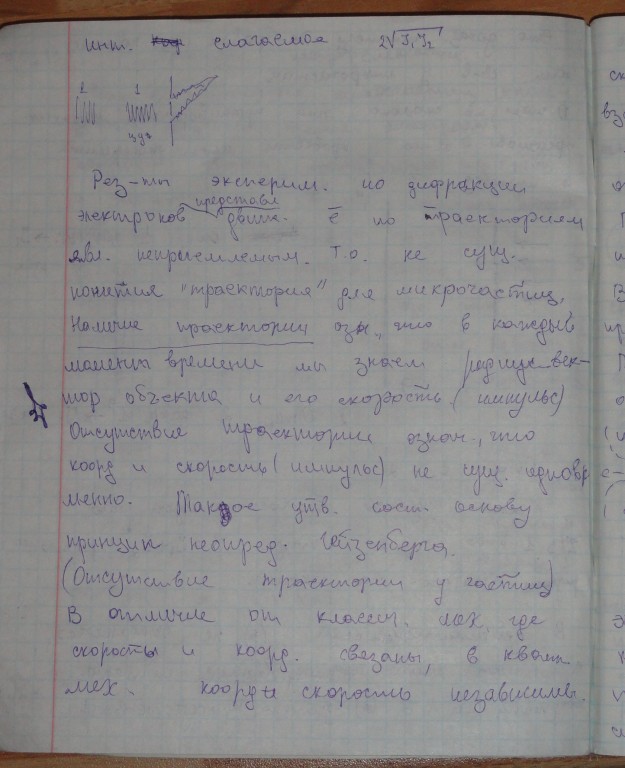 инт. слагаемое 2√J₁J₂
1 1
Рез-ты эксперим. по дифракции
представл
электронов движ. ē по траекториям
явл. неприемлемым. т.о. не сущ.
понятия "траектория" для микрочастиц.
Наличие траектории озн., что в каждый
момент времени мы знаем радиус-век-
тор объекта и его скорость (импульс)
Отсутствие траектории означ., что
коорд и скорость (импульс) не сущ. одновре
менно. Такое утв. сост. основу
принцип неопред. Гейзенберга.
(Отсутствие траектории у частиц)
В отличие от классич. мех. где
скорость и коорд. свезаны, в квант
мех. коорд и скорость независимы.